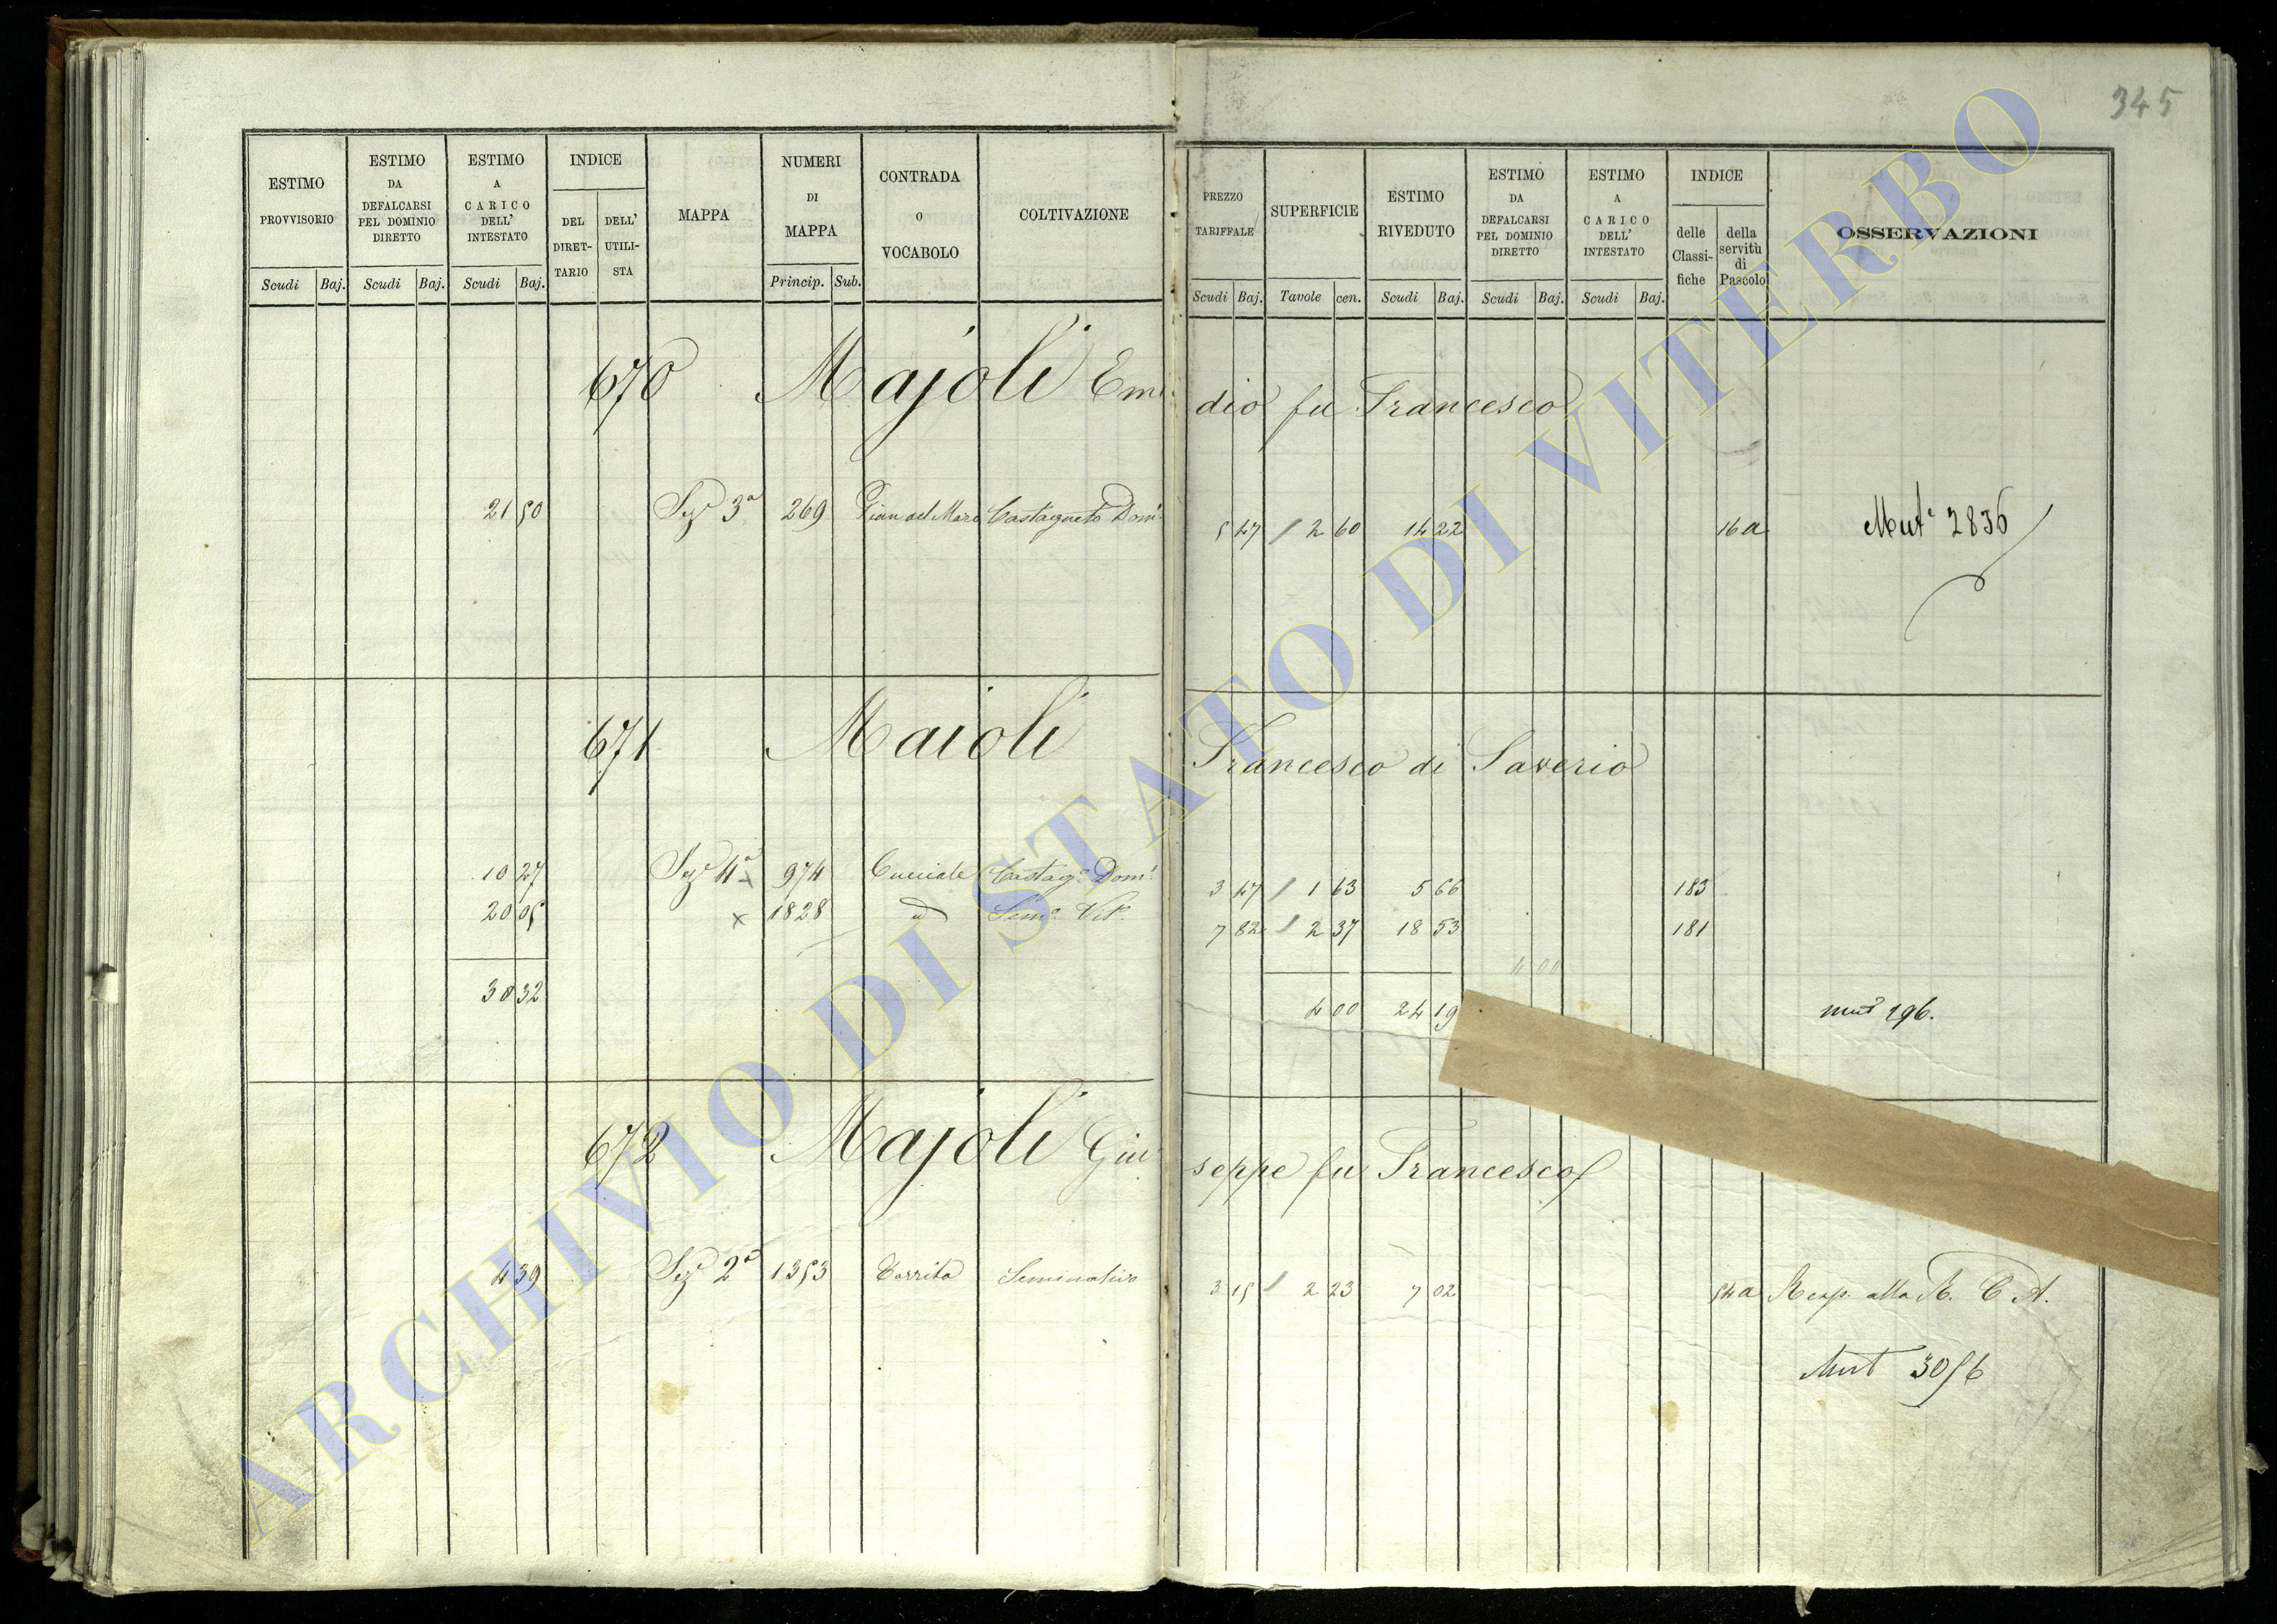 345
ESTIMO PROVVISORIO
ESTIMO DA DEFALCARSI PEL DOMINIO DIRETTO
ESTIMO A CARICO DELL' INTESTATO
INDICE
DEL DIRET-TARIO
DELL' UTILI-STA
MAPPA
NUMERI DI MAPPA
CONTRADA O VOCABOLO
COLTIVAZIONE
PREZZO TARIFFALE
SUPERFICIE
ESTIMO RIVEDUTO
ESTIMO DA DEFALCARSI PEL DOMINIO DIRETTO
ESTIMO A CARICO DELL' INTESTATO
INDICE
delle Classi-fiche
della servitù di Pascolo
OSSERVAZIONI
Scudi Baj. Scudi Baj. Scudi Baj. Princip. Sub. Scudi Baj. Tavole cen. Scudi Baj. Scudi Baj. Scudi Baj.
670 Majoli Emidio fu Francesco
21 50 Sez.e 3a 269 Castagneto Dom.e 5 47 2 60 14 22 16a Mut.e 2836
671 Maioli Francesco di Saverio
10 27 Sez.e 4a 974 Cucciale Castag.o Dom.e 3 47 1 63 5 66 183
20 05 x 1828 id Sem.o Vit.o 7 82 2 37 18 53 181
4 00
30 32 4 00 24 19 mut 196.
672 Majoli Giuseppe fu Francesco
4 39 Sez.e 2a 1353 Torrita Seminativo 3 15 2 23 7 02 54a Resp. alla R. C. A.
Mut 3056
ARCHIVIO DI STATO DI VITERBO